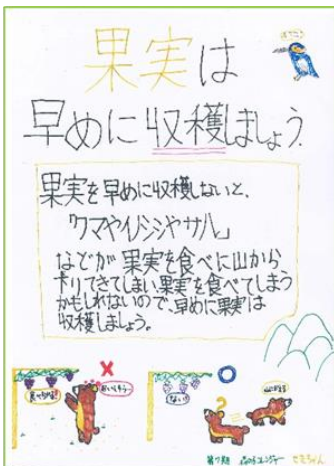 果実は
早めに収穫しましょう。
果実を早めに収穫しないと、
「クマやイノシシやサル」
などが果実を食べに山から
下りてきてしまい、果実を食べてしまう
かもしれないので、早めに果実は
収穫しましょう。
おいしそう
ない!!
第7期 森のレンジャー